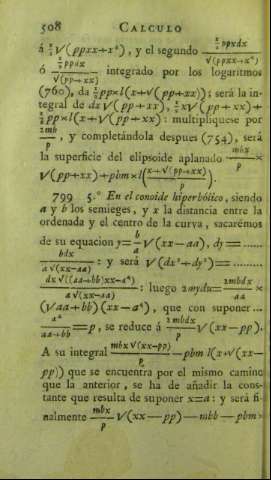 508 CALCULO
á ½√(ppxx+x⁴), y el segundo ½ppxdx/√(ppxx+x⁴)
ó ½ppdx/√(pp+xx) integrado por los logaritmos
(760), da ½pp×l(x+√(pp+xx)); será la in-
tegral de dx√(pp+xx), ½x√(pp+xx)+
½pp×l(x+√(pp+xx): multiplíquese por
2mb/p, y completándola despues (754), será
la superficie del elipsoide aplanado mbx/p ×
√(pp+xx)+pbm×l(x+√(pp+xx)/p).
799 5.° En el conoide hiperbólico, siendo
a y b los semiejes, y x la distancia entre la
ordenada y el centro de la curva, sacarémos
de su equacion y=b/a√(xx—aa), dy=......
bdx/a√(xx—aa): y será √(dx²+dy²)=.........
dx√((aa+bb)xx—a⁴)/a√(xx—aa): luego 2mydu=2mbdx/aa ×
(√(aa+bb)(xx—a⁴), que con suponer...
a⁴/aa+bb=p, se reduce á 2mbdx/p√(xx—pp).
A su integral mbx√(xx—pp)/p—pbm l(x+√(xx—
pp)) que se encuentra por el mismo camino
que la anterior, se ha de añadir la cons-
tante que resulta de suponer x=a: y será fi-
nalmente mbx/p√(xx—pp)—mbb—pbm×